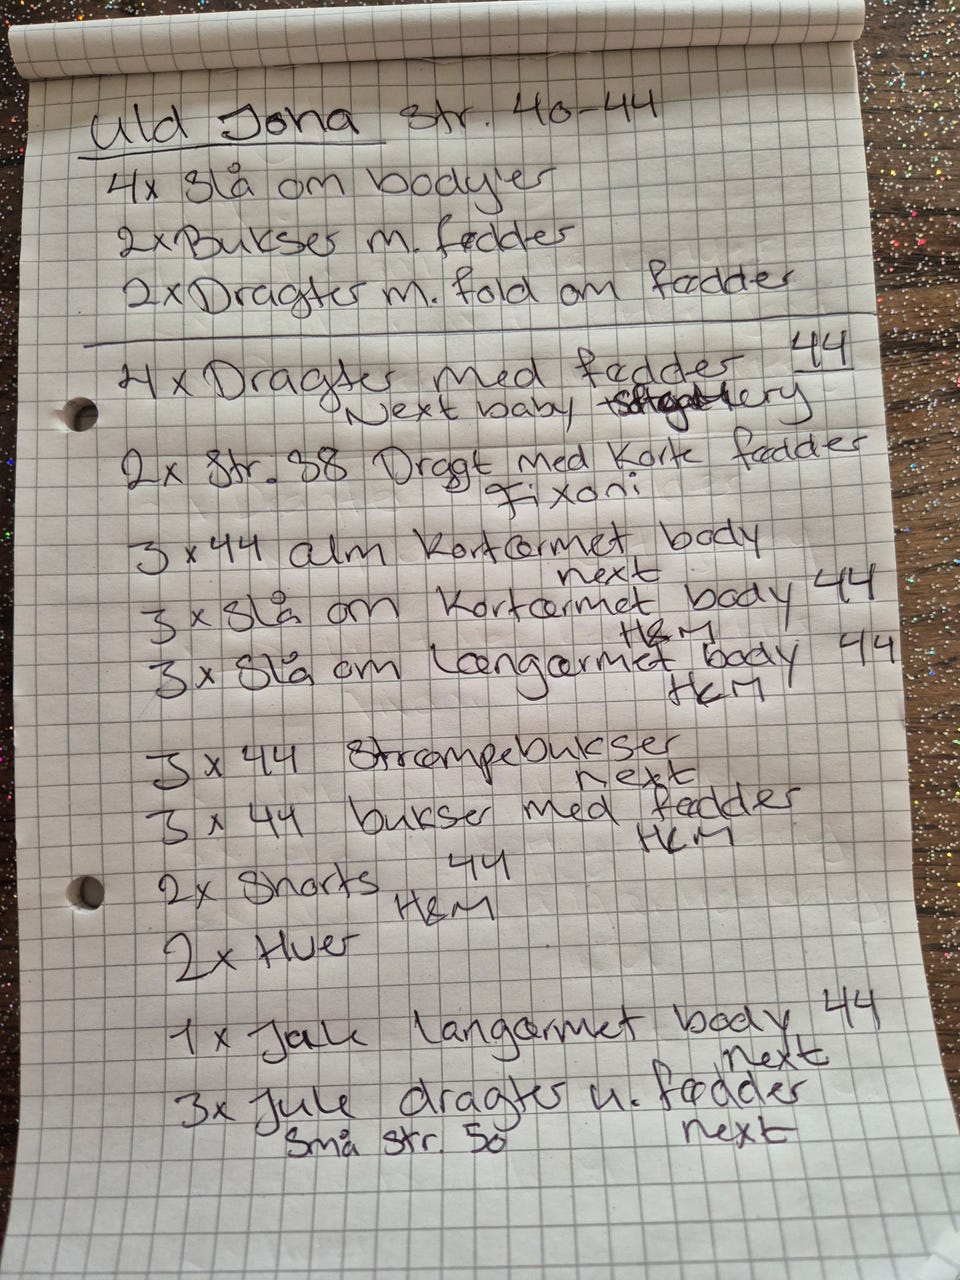 Uld Jona str. 40-44
4x Slå om bodyer
2x Bukser m. fødder
2x Dragter m. fold om fødder
4x Dragter med fødder 44
Next baby
2x Str. 38 Dragt med korte fødder
Fixoni
3x44 alm kortærmet body
next
3x Slå om kortærmet body 44
H&M
3x Slå om længærmet body 44
H&M
3x 44 Strømpebukser
next
3x 44 bukser med fødder
H&M
2x Shorts 44
H&M
2x Huer
1x Jule langærmet body 44
next
3x Jule dragter u. fødder
Små str. 50 next